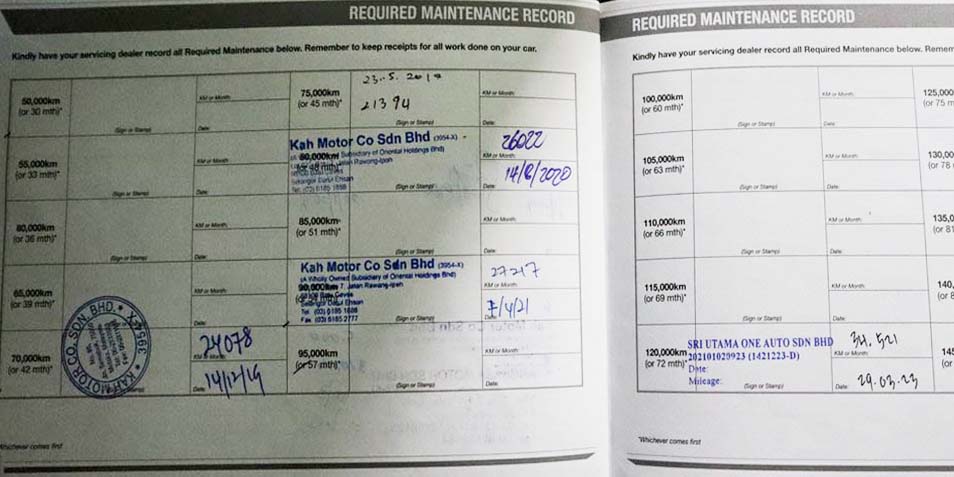 REQUIRED MAINTENANCE RECORD
Kindly have your servicing dealer record all Required Maintenance below. Remember to keep receipts for all work done on your car.
50,000km
(or 30 mth)*
(Sign or Stamp)
KM or Month:
Date:
75,000km
(or 45 mth)*
23.5.2019
21394
(Sign or Stamp)
KM or Month:
Date:
55,000km
(or 33 mth)*
(Sign or Stamp)
KM or Month:
Date:
Kah Motor Co Sdn Bhd (3954-X)
Subsidiary of Oriental Holdings Bhd)
80,000km
(or 48 mth)*
Selangor Darul Ehsan
(Sign or Stamp)
26022
KM or Month:
14/6/2020
Date:
60,000km
(or 36 mth)*
(Sign or Stamp)
KM or Month:
Date:
85,000km
(or 51 mth)*
(Sign or Stamp)
KM or Month:
Date:
65,000km
(or 39 mth)*
KM or Month:
Date:
Kah Motor Co Sdn Bhd (3954-X)
(A Wholly Owned Subsidiary of Oriental Holdings Bhd)
90,000km
7, Jalan Rawang-Ipoh
Selangor Darul Ehsan
Tel: (03) 6185 1688
Fax: (03) 6185 2777
(Sign or Stamp)
27217
KM or Month:
7/4/21
Date:
70,000km
(or 42 mth)*
KAH MOTOR CO. SDN. BHD. * 3954-X *
24078
KM or Month:
14/12/19
Date:
95,000km
(or 57 mth)*
(Sign or Stamp)
KM or Month:
Date:
*Whichever comes first
REQUIRED MAINTENANCE RECORD
Kindly have your servicing dealer record all Required Maintenance below. Remem
100,000km
(or 60 mth)*
(Sign or Stamp)
KM or Month:
Date:
125,000
(or 75 m
105,000km
(or 63 mth)*
(Sign or Stamp)
KM or Month:
Date:
130,00
(or 78
110,000km
(or 66 mth)*
(Sign or Stamp)
KM or Month:
Date:
135,0
(or 81
115,000km
(or 69 mth)*
(Sign or Stamp)
KM or Month:
Date:
140,
(or 8
120,000km
(or 72 mth)*
SRI UTAMA ONE AUTO SDN BHD
202101029923 (1421223-D)
Date:
Mileage:
(Sign or Stamp)
34.521
KM or Month:
29.03.23
Date:
145
(or
*Whichever comes first